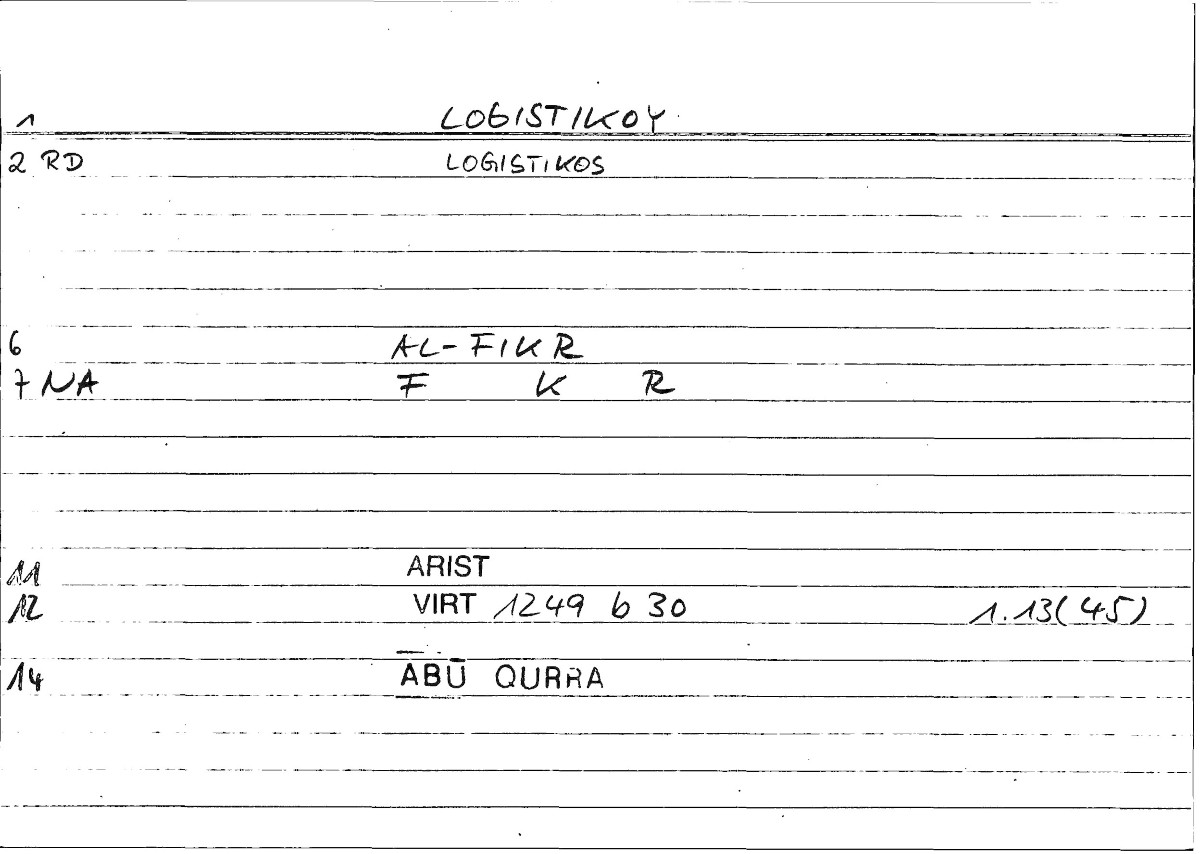 1 LOGISTIKOY
2 RD LOGISTIKOS
6 AL-FIKR
7 NA F K R
11 ARIST
12 VIRT 1249 b 30 1.13(45)
14 ABŪ QURRA